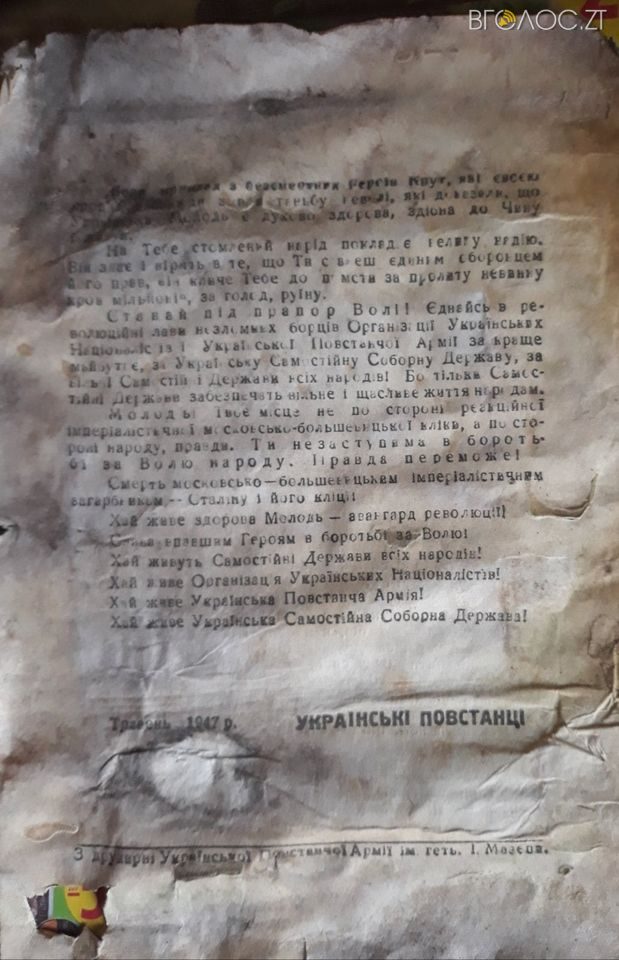 ВГОЛОС.ZT
з безсмертних Героїв Крут, які своєю
які доказали, що
Молодь є духово здорова, здібна до Чину
На Тебе стомлений нарід покладає велику надію.
Він знає і вірить в те, що Ти є єдиним оборонцем
його прав, він кличе Тебе до помсти за пролиту невинну
кров мільйонів, за голод, руїну.
Ставай під прапор Волі! Єднайсь в ре-
волюційні лави незломних борців Організації Українських
Націоналістів і Української Повстанчої Армії за краще
майбутнє, за Українську Самостійну Соборну Державу, за
вільні Самостійні Держави всіх народів! Бо тільки Самос-
тійні Держави забезпечать вільне і щасливе життя народам.
Молоды! Твоє місце не по стороні реакційної
імперіялістичної московсько-большевицької кліки, а по сто-
роні народу, правди. Ти незаступима в бороть-
бі за Волю народу. Правда переможе!
Смерть московсько-большевицьким імперіялістичним
загарбникам — Сталіну і його кліці!
Хай живе здорова Молодь — авангард революції!
Слава впавшим Героям в боротьбі за Волю!
Хай живуть Самостійні Держави всіх народів!
Хай живе Організація Українських Націоналістів!
Хай живе Українська Повстанча Армія!
Хай живе Українська Самостійна Соборна Держава!
Травень 1947 р. УКРАЇНСЬКІ ПОВСТАНЦІ
З друкарні Української Повстанчої Армії ім. геть. І. Мазепи.